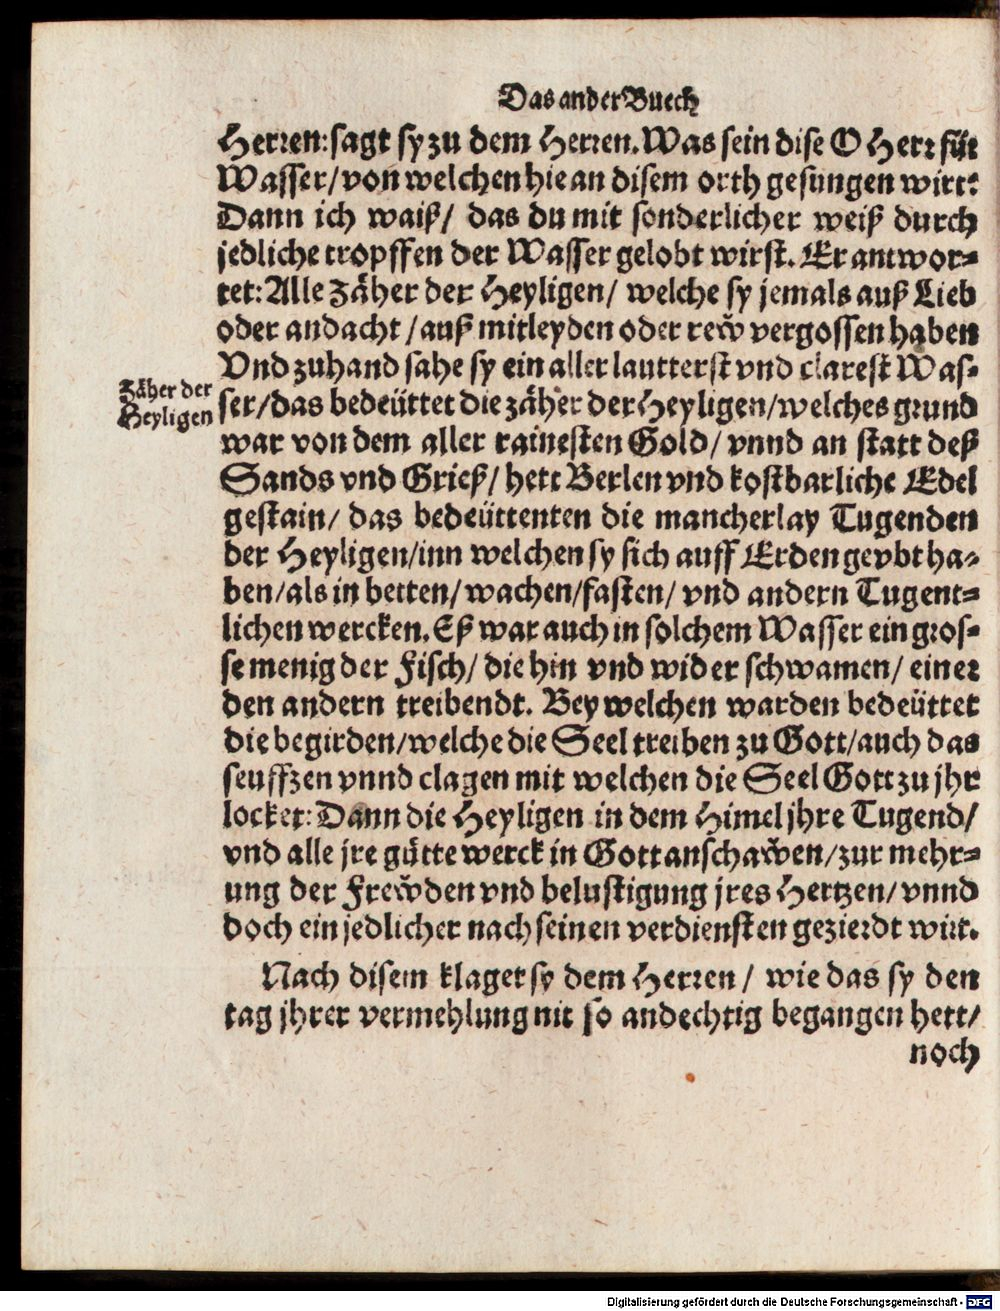 Das ander Buech
Herren: sagt sy zu dem Herren. Was sein dise O Herr für
Wasser/ von welchen hie an disem orth gesungen wirt:
Dann ich waiß/ das du mit sonderlicher weiß durch
jedliche tropffen der Wasser gelobt wirst. Er antwor-
tet: Alle Zäher der Heyligen/ welche sy jemals auß Lieb
oder andacht/ auß mitleyden oder rew̆ vergossen haben
Vnd zuhand sahe sy ein aller lautterst vnd clarest Was-
Zäher der
Heyligen
ser/ das bedeüttet die zäher der Heyligen/ welches grund
war von dem aller rainesten Gold/ vnnd an statt deß
Sands vnd Grieß/ hett Berlen vnd kostbarliche Edel
gestain/ das bedeüttenten die mancherlay Tugenden
der Heyligen/ inn welchen sy sich auff Erden gevbt ha-
ben/ als in betten/ wachen/ fasten/ vnd andern Tugent-
lichen wercken. Eß war auch in solchem Wasser ein gros-
se menig der Fisch/ die hin vnd wider schwamen/ einer
den andern treibendt. Bey welchen warden bedeüttet
die begirden/ welche die Seel treiben zu Gott/ auch das
seuffzen vnnd clagen mit welchen die Seel Gott zu jhr
locket: Dann die Heyligen in dem Himel jhre Tugend/
vnd alle jre gütte werck in Gott anschaw̆en/ zur mehr-
ung der Frew̆den vnd belustigung jres Hertzen/ vnnd
doch ein jedlicher nach seinen verdiensten gezierdt wirt.
Nach disem klaget sy dem Herren/ wie das sy den
tag jhrer vermehlung nit so andechtig begangen hett/
noch
Digitalisierung gefördert durch die Deutsche Forschungsgemeinschaft - DFG